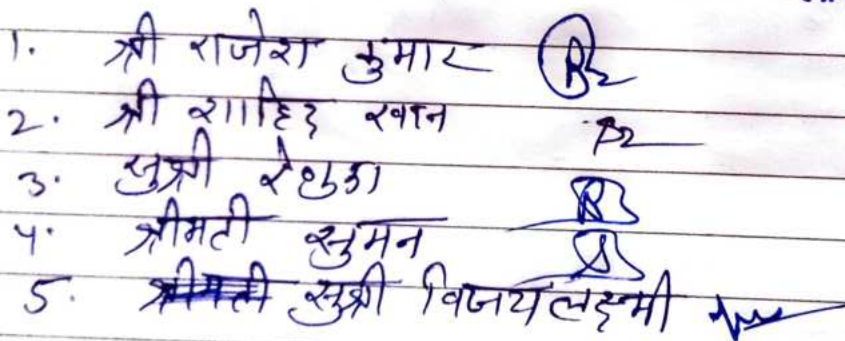 1. श्री राजेश कुमार
2. श्री शाहिद खान
3. सुश्री रेणुका
4. श्रीमती सुमन
5. श्रीमती सुश्री विजयलक्ष्मी